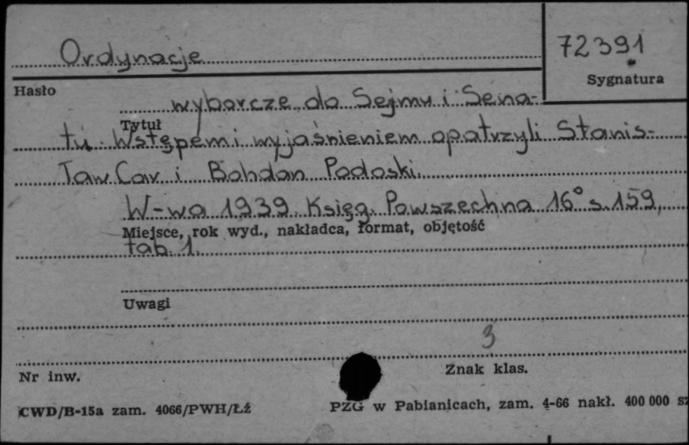 Ordynacje
72391
Hasło
Sygnatura
wyborcze do Sejmu i Sena-
Tytuł
tu. Wstępem i wyjaśnieniem opatrzyli Stanis-
ław Car i Bohdan Podoski.
W-wa 1939. Księg. Powszechna 16° s. 159,
Miejsce, rok wyd., nakładca, format, objętość
tab. 1.
Uwagi
3
Nr inw.
Znak klas.
CWD/B-15a zam. 4066/PWH/Łź
PZG w Pabianicach, zam. 4-66 nakł. 400 000 sz